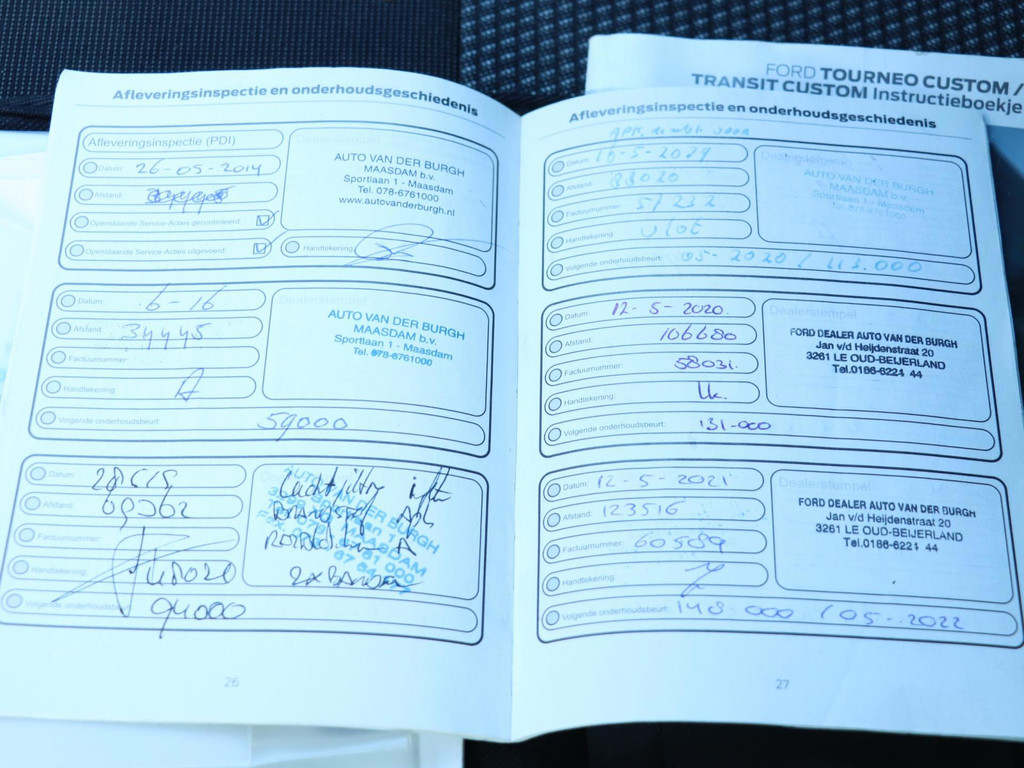 FORD TOURNEO CUSTOM /
TRANSIT CUSTOM Instructieboekje
Afleveringsinspectie en onderhoudsgeschiedenis
Afleveringsinspectie (PDI)
Datum: 26-05-2014
Afstand:
Openstaande Service-Acties gecontroleerd:
Openstaande Service-Acties uitgevoerd:
AUTO VAN DER BURGH
MAASDAM b.v.
Sportlaan 1 - Maasdam
Tel. 078-6761000
www.autovanderburgh.nl
Handtekening:
Datum: 6-16
Afstand: 34445
Factuurnummer:
Handtekening:
Volgende onderhoudsbeurt: 59000
Dealerstempel
AUTO VAN DER BURGH
MAASDAM b.v.
Sportlaan 1 - Maasdam
Tel. 078-6761000
Datum:
Afstand:
Factuurnummer:
Handtekening:
Volgende onderhoudsbeurt: 94000
26
Afleveringsinspectie en onderhoudsgeschiedenis
Datum:
Afstand: 88020
Factuurnummer: 51232
Handtekening:
Volgende onderhoudsbeurt: 05-2020 / 113.000
AUTO VAN DER BURGH
MAASDAM b.v.
Sportlaan 1 - Maasdam
Tel. 078-6761000
Datum: 12-5-2020
Afstand: 106680
Factuurnummer: 58031
Handtekening:
Volgende onderhoudsbeurt: 131-000
Dealerstempel
FORD DEALER AUTO VAN DER BURGH
Jan v/d Heijdenstraat 20
3261 LE OUD-BEIJERLAND
Tel.0186-6221 44
Datum: 12-5-2021
Afstand: 123516
Factuurnummer: 60589
Handtekening:
Volgende onderhoudsbeurt: 148-000 / 05-2022
Dealerstempel
FORD DEALER AUTO VAN DER BURGH
Jan v/d Heijdenstraat 20
3261 LE OUD-BEIJERLAND
Tel.0186-6221 44
27